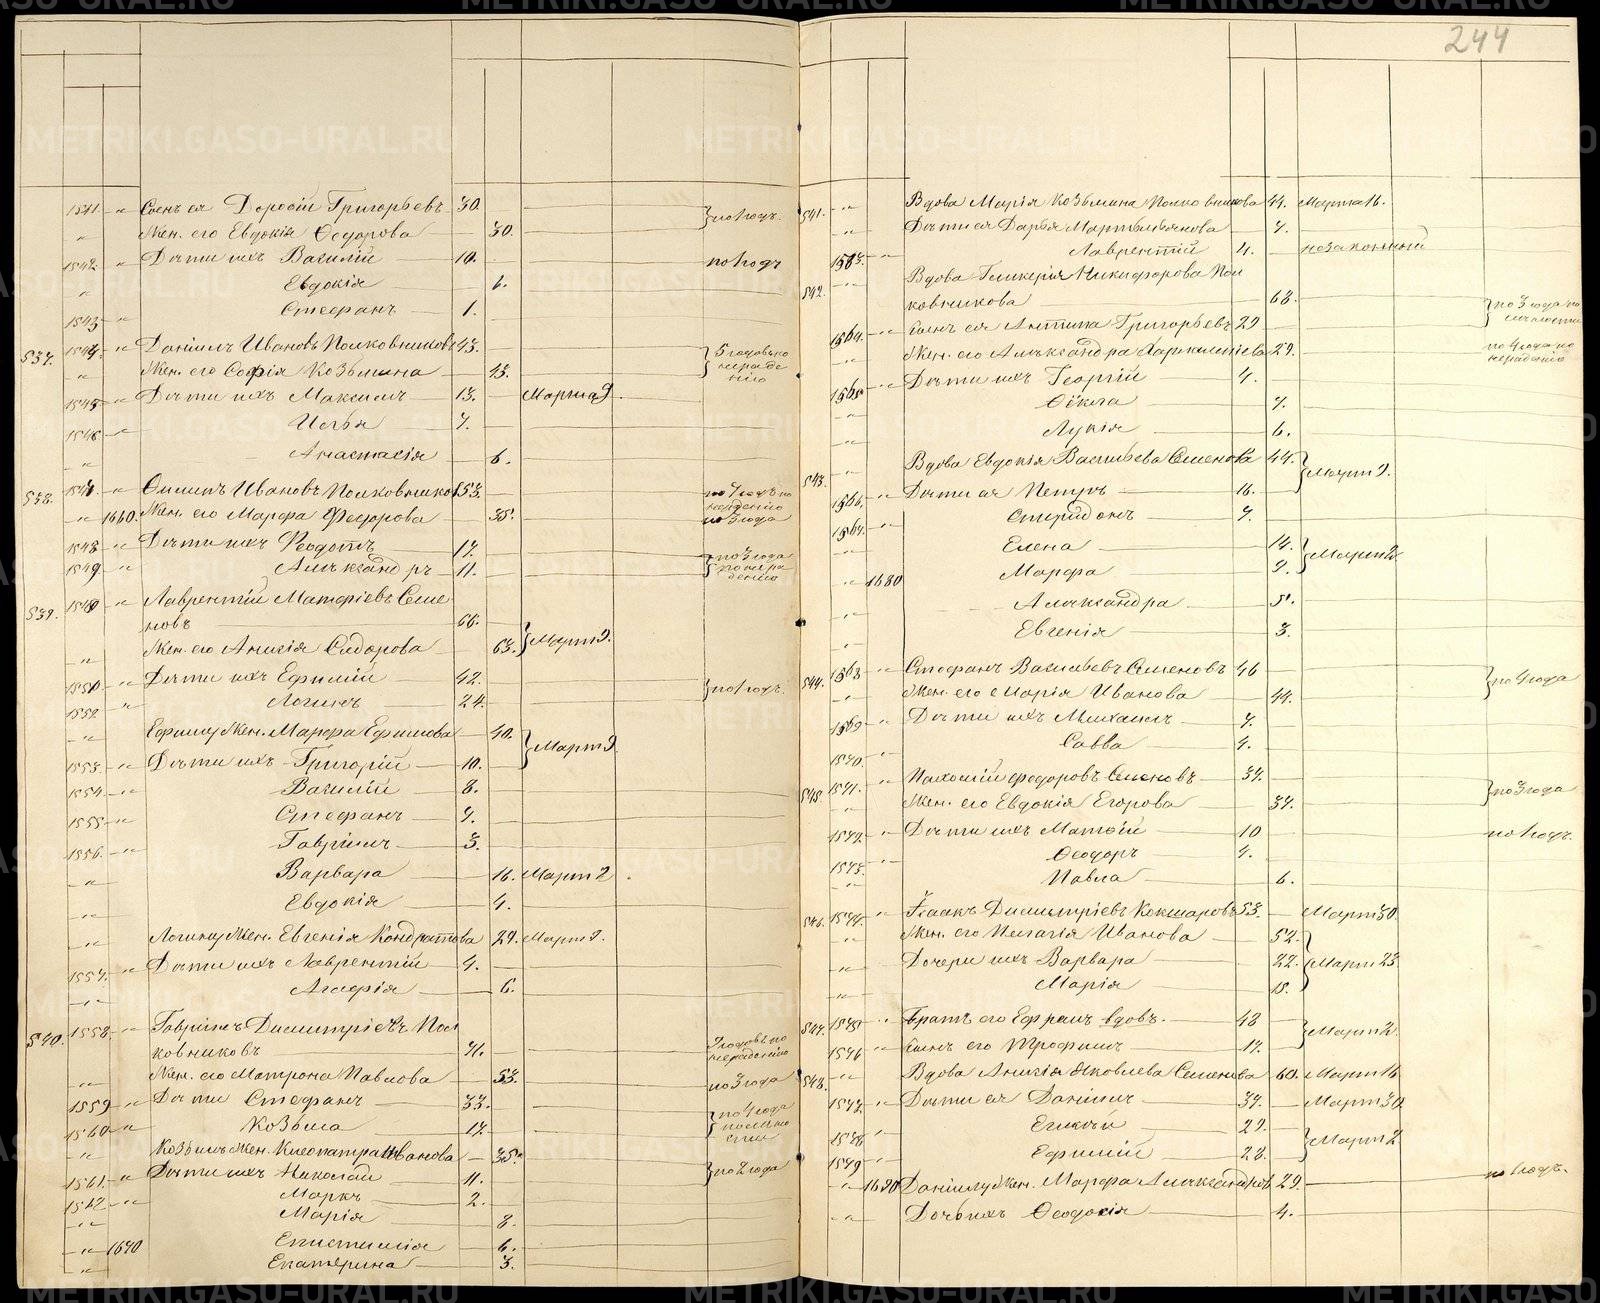 244
1541 " Сынъ ея Дороѳій Григорьевъ 30.
" Жен. его Евдокія Ѳедорова 30. по 1 годъ.
1542. " Дѣти ихъ Василій 10. по 1 годъ
" Евдокія 6.
1543 " Стефанъ 1.
537. 1544. " Даніилъ Ивановъ Полковниковъ 43.
" Жен. его Софія Козьмина 43. 5 годовъ по нерадѣнію
1545 " Дѣти ихъ Максимъ 13. Марта 9.
1546 " Илья 7.
" Анастасія 6.
538. " Филипъ Ивановъ Полковников 53.
" 1660. Жен. его Марфа Федорова 35. по 3 года
1548 " Дѣти ихъ Ѳеодотъ 17. по 3 года по нерадѣнію
1549. " Александръ 11.
539. " Лаврентій Матфіевъ Семеновъ 66.
" Жен. его Анисія Сидорова 63. Март 9.
1550 " Дѣти ихъ Ефимій 42. по 1 годъ.
1552. " Логинъ 24.
" Ефиму Жен. Марфа Ефимова 40. Март 9.
1553. " Дѣти ихъ Григорій 10.
1554. " Василій 8.
1555 " Стефанъ 7.
1556. " Гавріилъ 3.
" Варвара 16. Март 2.
" Евдокія 4.
" Логину Жен. Евгенія Кондратова 29. Март 9.
1557. " Дѣти ихъ Лаврентій 4.
" Агафія 6.
540. 1558. " Гавріилъ Димитріевъ Полковниковъ 71. по нерадѣнію
" Жен. его Матрона Павлова 53. по 3 года
1559 " Дѣти Стефанъ 33. по 4 года
1560 " Козьма 17.
" Козьмы Жен. Клеопатра Иванова 35.
1561. " Дѣти ихъ Николай 11. по 2 года
1562 " Маркъ 2.
" Марія 8.
" 1670 Епистимія 6.
" Екатерина 3.
541. " Вдова Марія Козьмина Полковникова 44. Марта 16.
" Дѣти ея Дарья Мартемьянова 7.
1563. " Лаврентій 4. незаконный
542. " Вдова Гликерія Никифорова Полковникова 68. по 3 года
1564. " Сынъ ея Антипа Григорьевъ 29
" Жен. его Александра Харлампіева 29. по 4 года по нерадѣнію
1565 " Дѣти ихъ Георгій 4.
" Ѳёкла 7.
" Лукія 6.
543. " Вдова Евдокія Васильева Семенова 44. Март 9.
1566. " Дѣти ея Петръ 16.
1567. " Спиридонъ 7.
" Елена 14. Март 2
" 1680 Марфа 9.
" Александра 5.
" Евгенія 3.
544. 1568 " Стефанъ Васильевъ Семеновъ 46 по 4 года
" Жен. его Марія Иванова 44.
1569 " Дѣти ихъ Михаилъ 7.
1570. " Савва 4.
545. 1571. " Пахомій Федоровъ Семеновъ 37. по 3 года
" Жен. его Евдокія Егорова 37.
1572. " Дѣти ихъ Матѳій 10 по 1 годъ.
1573. " Ѳеодоръ 4.
" Павла 6.
546. 1574. " Исаакъ Димитріевъ Кокшаровъ 53. Март 30
" Жен. его Пелагія Иванова 52.
" Дочери ихъ Варвара 22. Март 23
" Марія 15.
547. 1575 " Братъ его Ефремъ вдовъ. 48 Март 2
1576 " Сынъ его Трофимъ 17.
548. " Вдова Анисія Яковлева Семенова 60. Март 16
1577. " Дѣти ея Даніилъ 37. Март 30
1578 " 29. Март 2
1579 " Ефимій 22.
" 1690 Даніилу Жен. Марфа Александров 29. по 1 годъ.
" Дочь ихъ Ѳеодосія 4.